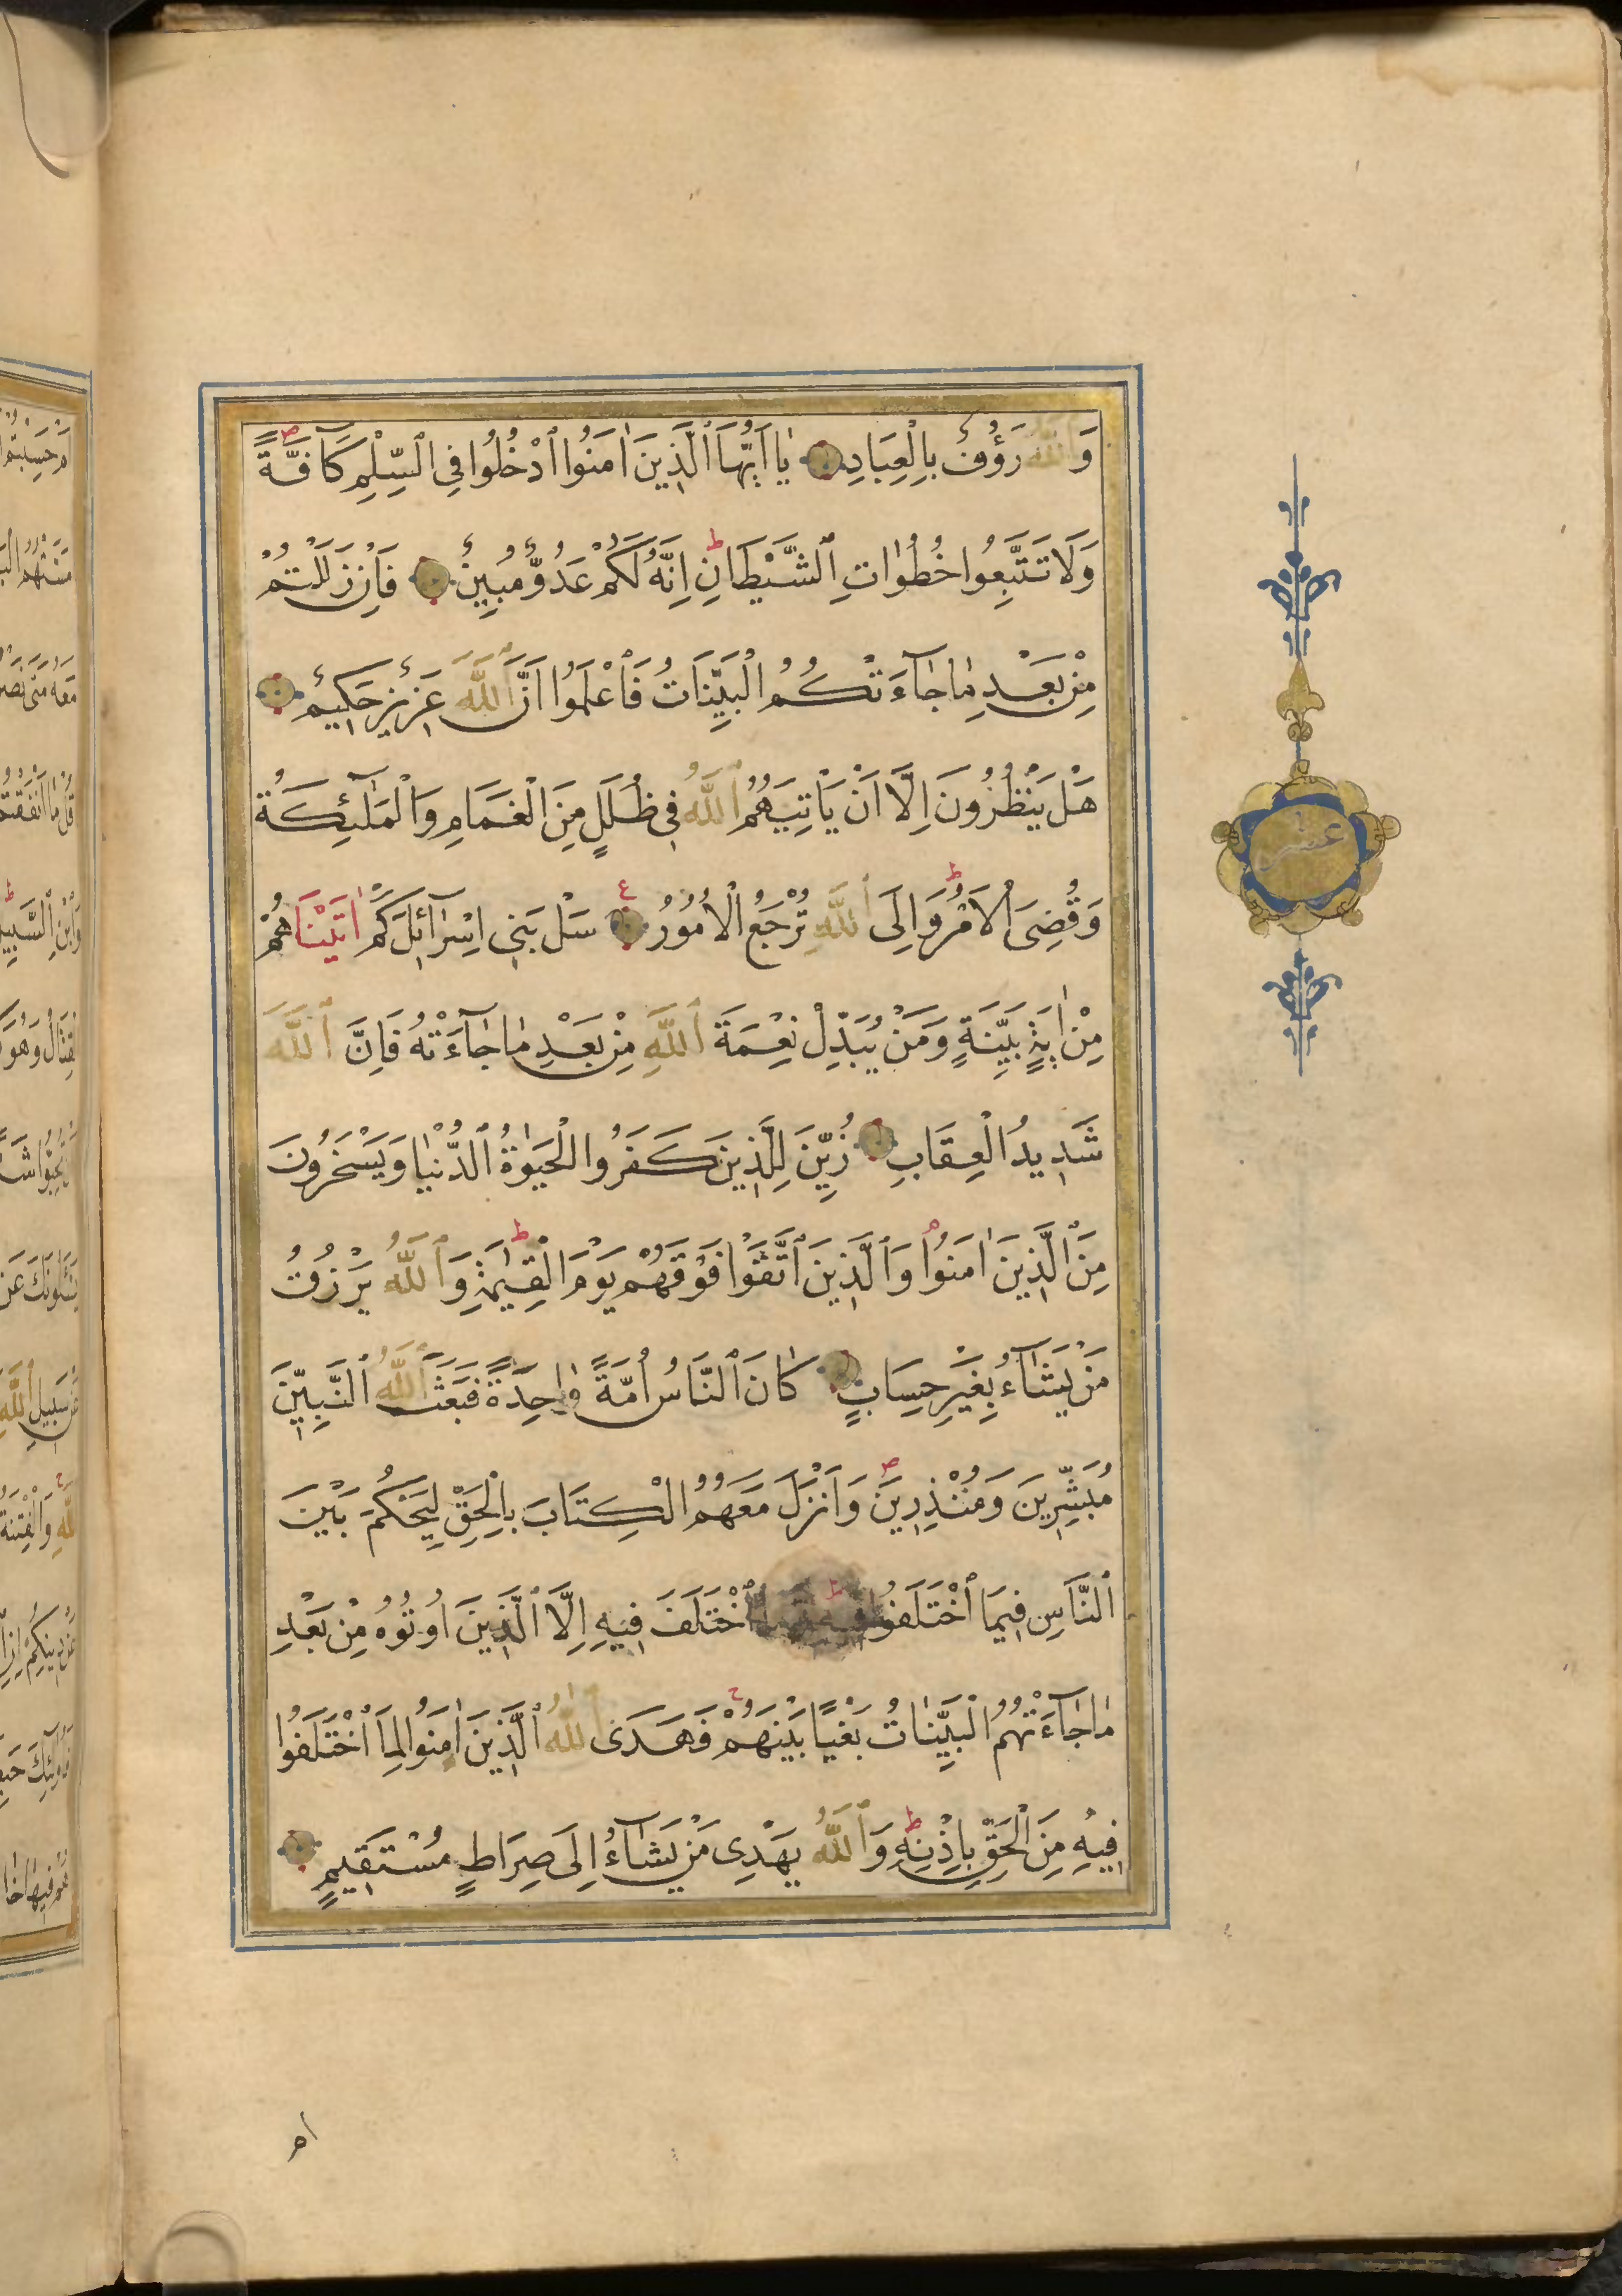 وَاللّٰهُ رَؤُفٌ بِالْعِبَادِ يٰا اَيُّهَا الَّذِينَ اٰمَنُوا ادْخُلُوا فِي السِّلْمِ كَآفَّةً ص
وَلَا تَتَّبِعُوا خُطُوٰاتِ الشَّيْطَانِ ط اِنَّهُ لَكُمْ عَدُوٌّ مُبِينٌ فَاِنْ زَلَلْتُمْ
مِنْ بَعْدِ مٰا جٰآءَتْكُمُ الْبَيِّنَاتُ فَاعْلَمُوا اَنَّ اللّٰهَ عَزِيزٌ حَكِيمٌ
هَلْ يَنْظُرُونَ اِلَّا اَنْ يَاْتِيَهُمُ اللّٰهُ فِي ظُلَلٍ مِنَ الْغَمَامِ وَالْمَلٰٓئِكَةُ
وَقُضِيَ الْاَمْرُ ط وَاِلَى اللّٰهِ تُرْجَعُ الْاُمُورُ ع سَلْ بَنِي اِسْرٰٓائِلَ كَمْ اٰتَيْنَاهُمْ
مِنْ اٰيَةٍ بَيِّنَةٍ وَمَنْ يُبَدِّلْ نِعْمَةَ اللّٰهِ مِنْ بَعْدِ مٰا جٰآءَتْهُ فَاِنَّ اللّٰهَ
شَدِيدُ الْعِقَابِ زُيِّنَ لِلَّذِينَ كَفَرُوا الْحَيٰوةُ الدُّنْيٰا وَيَسْخَرُونَ
مِنَ الَّذِينَ اٰمَنُوا م وَالَّذِينَ اتَّقَوْا فَوْقَهُمْ يَوْمَ الْقِيٰمَةِ ط وَاللّٰهُ يَرْزُقُ
مَنْ يَشٰآءُ بِغَيْرِ حِسَابٍ كٰانَ النَّاسُ اُمَّةً وٰاحِدَةً فَبَعَثَ اللّٰهُ النَّبِيِّنَ
مُبَشِّرِينَ وَمُنْذِرِينَ ص وَاَنْزَلَ مَعَهُمُ الْكِتَابَ بِالْحَقِّ لِيَحْكُمَ بَيْنَ
النَّاسِ فِيمَا اخْتَلَفُوا فِيهِ ط وَمَا اخْتَلَفَ فِيهِ اِلَّا الَّذِينَ اُوتُوهُ مِنْ بَعْدِ
مٰا جٰآءَتْهُمُ الْبَيِّنٰاتُ بَغْيًا بَيْنَهُمْ ج فَهَدَى اللّٰهُ الَّذِينَ اٰمَنُوا لِمَا اخْتَلَفُوا
فِيهِ مِنَ الْحَقِّ بِاِذْنِهِ ط وَاللّٰهُ يَهْدِي مَنْ يَشٰآءُ اِلَى صِرَاطٍ مُسْتَقِيمٍ
عشر